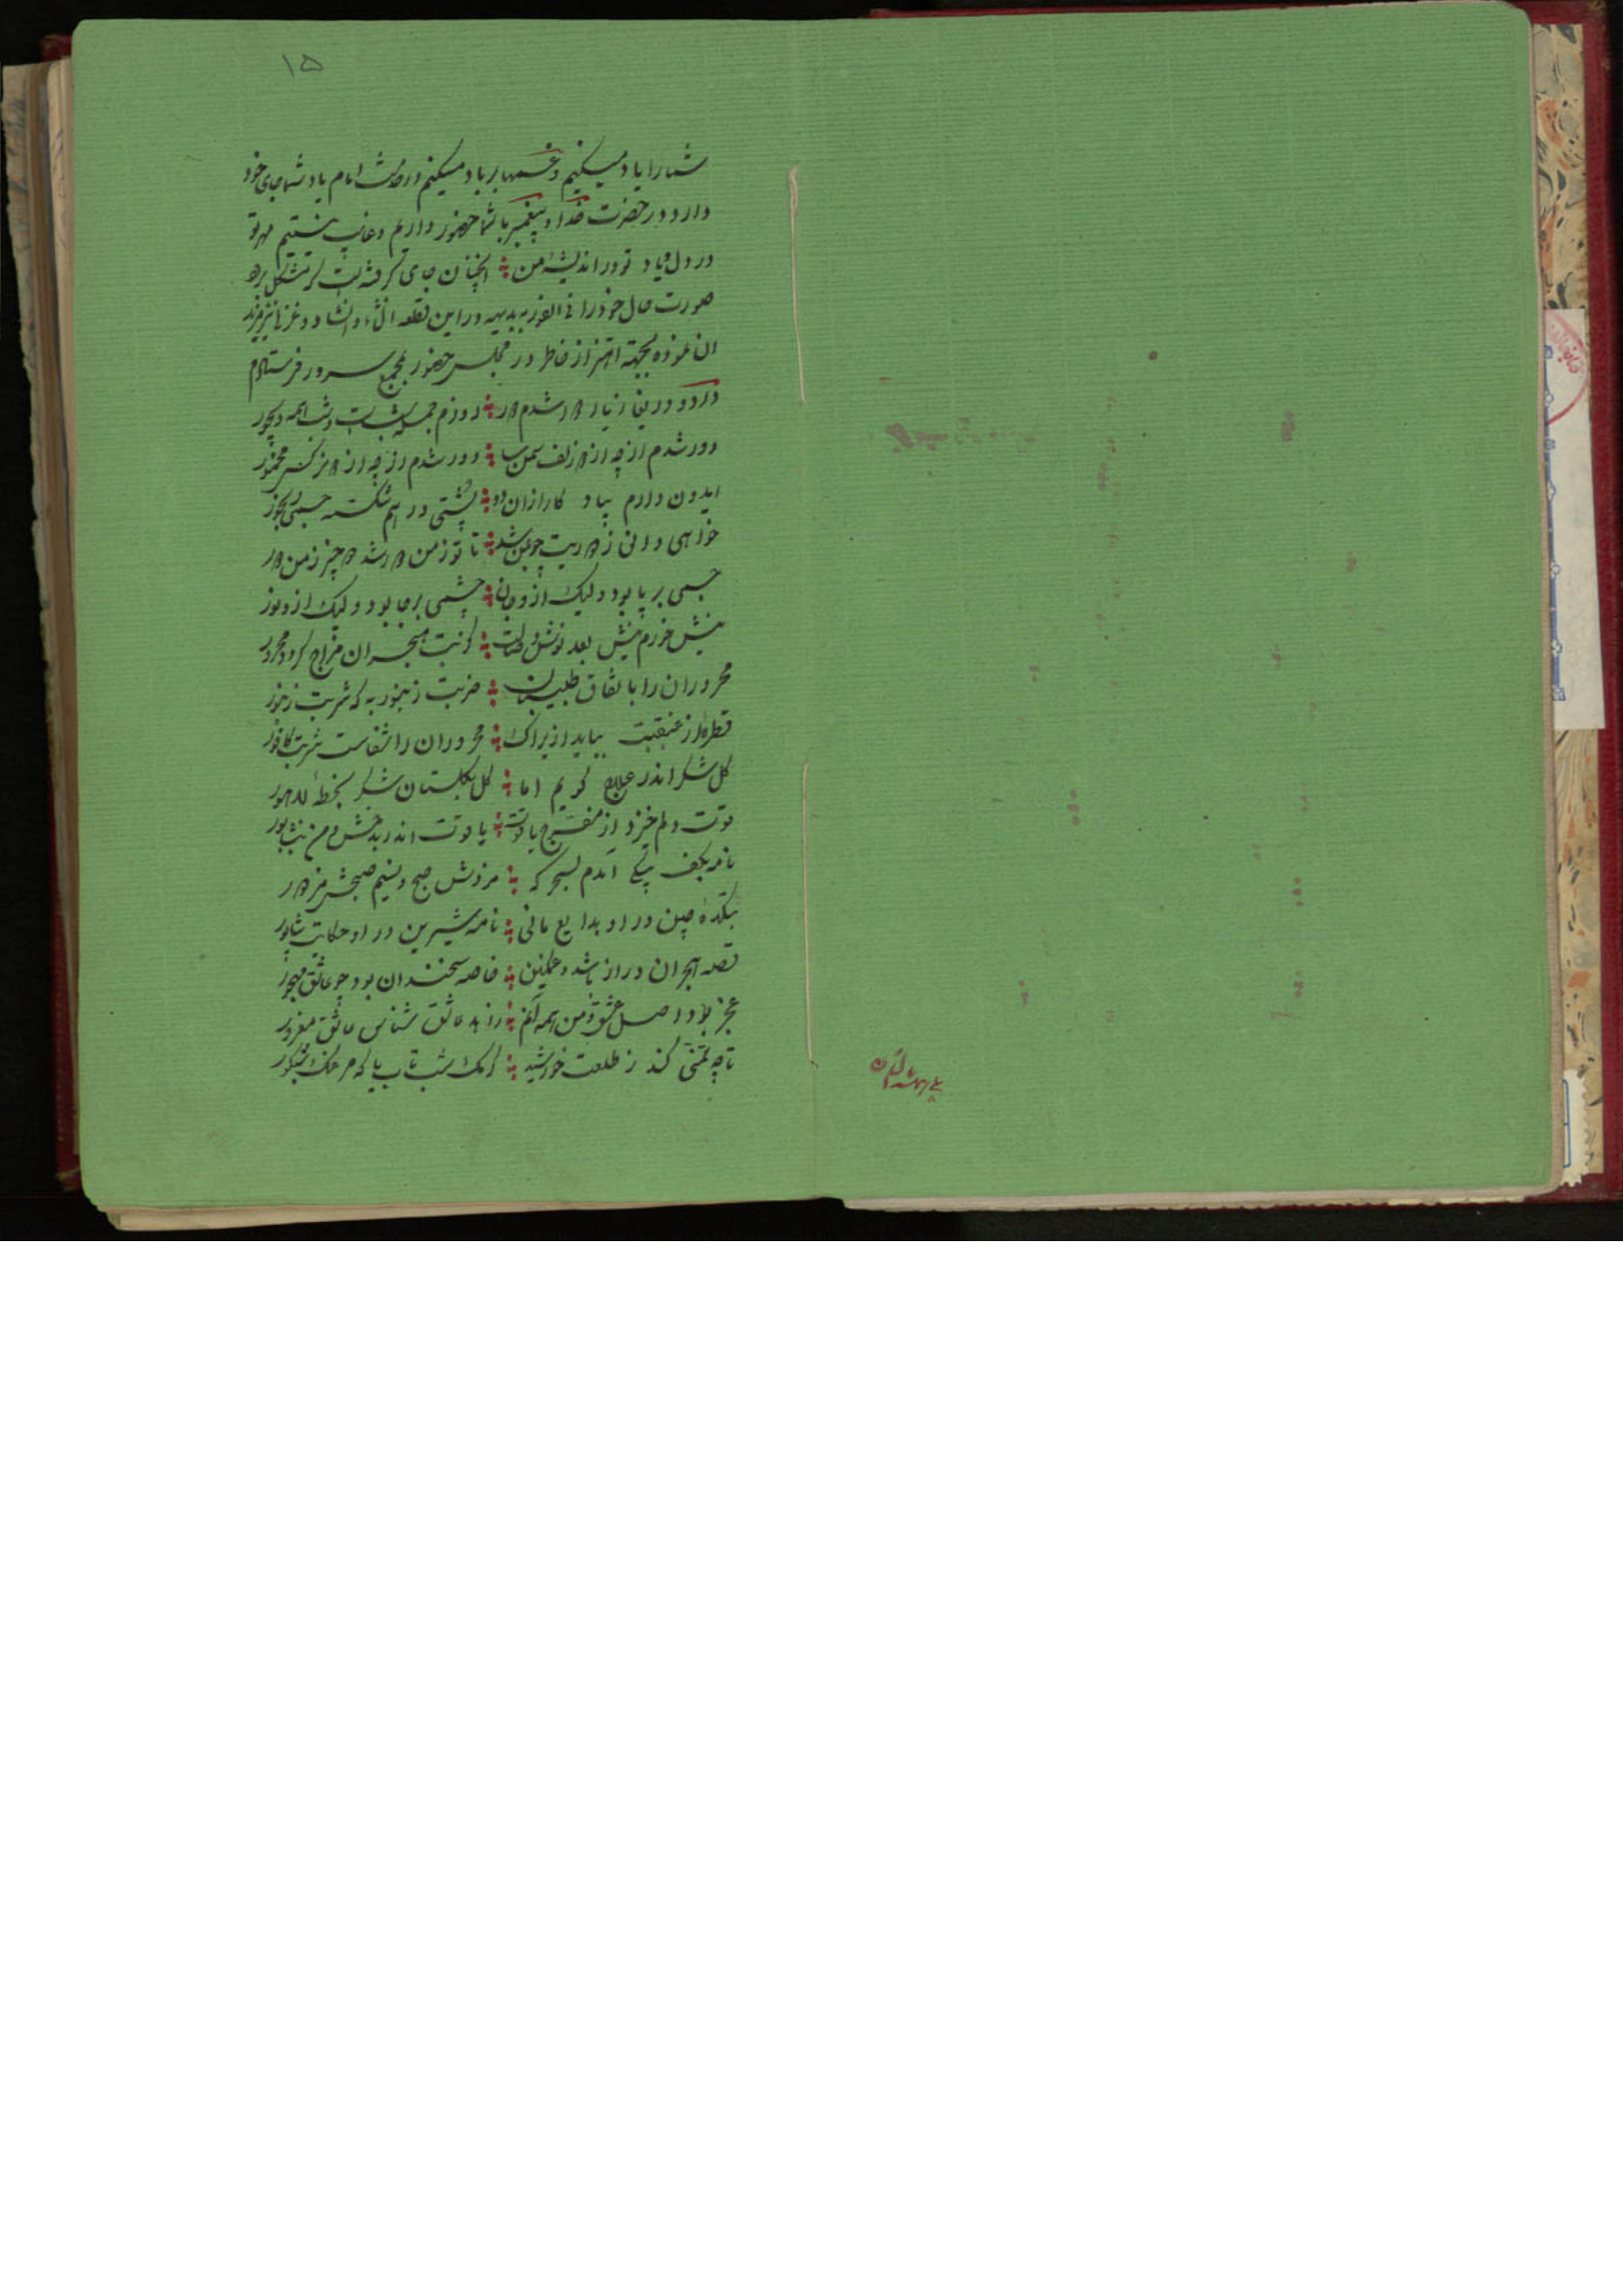 ۱۵
شما را یاد میکنیم و غمها بر باد میکنیم در خدمت امام یاد شما جای خود
دارد و در حضرت خدا و پیغمبر با شما حضور داریم و غایب نیستیم مهر تو
در دل و یاد تو در اندیشه من آنچنان جای گرفته است که مشکل برود
صورت حال خود را فی الفور بدیهه در این قطعه انشاء و انشاد و غزلی نیز مزید
آن نموده بجهة اهتزاز خاطر در مجلس حضور بمجمع سرور فرستادم
درد و دریغا ز یار دور شدم دور روزم جمله شب است و شب همه دیجور
دور شدم از چه از دو زلف سمن سا دور شدم از چه از دو نرگس مخمور
ایدون دارم بیاد کار از آن دو پشتی در هم شکسته جسمی رنجور
خواهی دانی ز دوریت چو بمن شد تا تو ز من دور شد دو چیز ز من دور
جسمی بر پا بود ولیک از و جان چشمی بر جا بود ولیک از و نور
نیش خورم نیش بعد نوش وصالت کز تب هجران مزاج کرده محرور
محروران را باتفاق طبیبان ضربت زنبور به که شربت زنبور
قطره از غبغبت بباید ازیراک محروران را شفاست شربت کافور
گل شکر اندر علاج گویم اما گل بگلستان شکر بخطه لاهور
قوت دلم خیزد از مفرح یاقوت یاقوت اندر بدخش و من بنشابور
نامه بکف پیکی آمدم بسحرگه
بتکده چین در او بدایع مانی نامه شیرین در او حکایت شاپور
قصه هجران دراز باشد و غمگین خاصه سخندان بود چو عاشق مهجور
عجز بود اصل عشق و من همه آنم زاهد عاشق شناس عاشق مغرور
تا چه تمنی کند ز طلعت خورشید کرمک شب تاب یا که مرغک شبکور